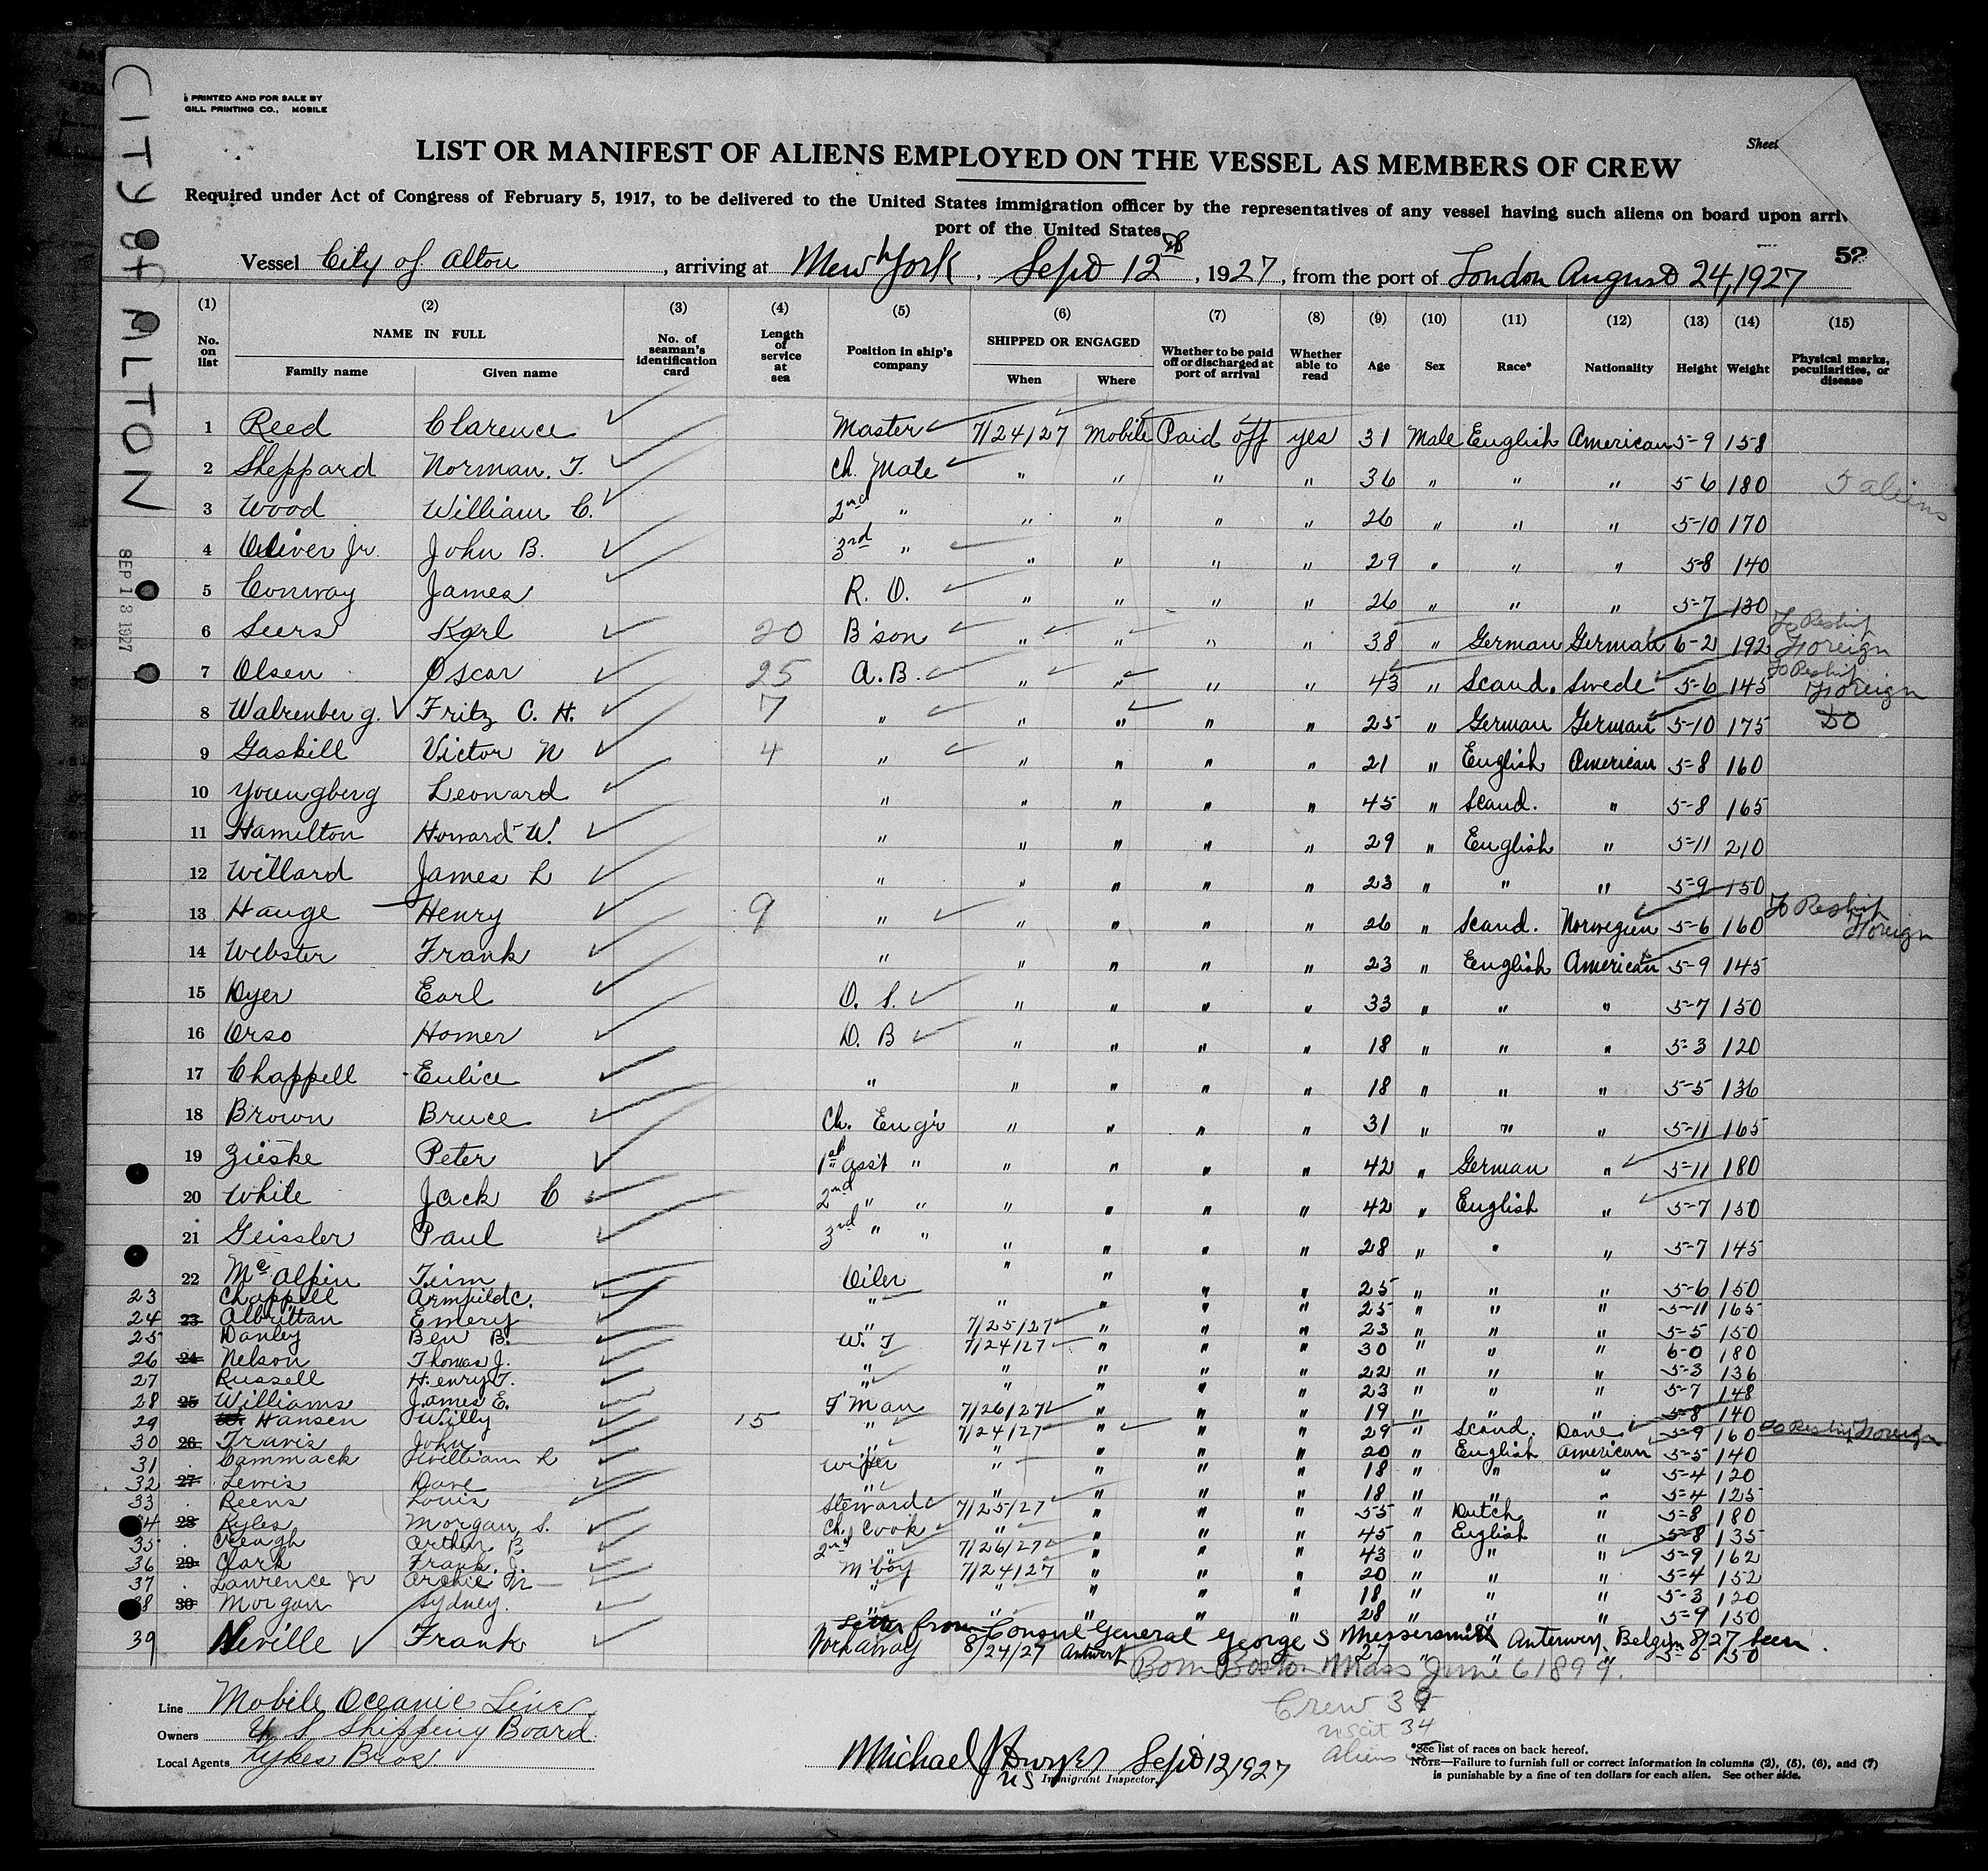 CITY of ALTON
SEP 13 1927
PRINTED AND FOR SALE BY
GILL PRINTING CO., MOBILE
Sheet
LIST OR MANIFEST OF ALIENS EMPLOYED ON THE VESSEL AS MEMBERS OF CREW
Required under Act of Congress of February 5, 1917, to be delivered to the United States immigration officer by the representatives of any vessel having such aliens on board upon arriv
port of the United States.
52
Vessel City of Alton, arriving at New York, Sept 12th, 1927, from the port of London August 24, 1927
(1) (2) (3) (4) (5) (6) (7) (8) (9) (10) (11) (12) (13) (14) (15)
No. on list NAME IN FULL Family name Given name No. of seaman's identification card Length of service at sea Position in ship's company SHIPPED OR ENGAGED When Where Whether to be paid off or discharged at port of arrival Whether able to read Age Sex Race* Nationality Height Weight Physical marks, peculiarities, or disease
1 Reed Clarence Master 7/24/27 Mobile Paid off yes 31 Male English American 5-9 158
2 Sheppard Norman. T. Ch. Mate " " " " 36 " " " 5-6 180 5 aliens
3 Wood William C. 2nd " " " " " 26 " " " 5-10 170
4 Oliver Jr. John B. 3rd " " " " " 29 " " " 5-8 140
5 Conway James R. O. " " " " 26 " " " 5-7 130
6 Seers Karl 20 B'son " " " " 38 " German German 6-2 192 To Reship Foreign
7 Olsen Oscar 25 A.B. " " " " 43 " Scand. Swede 5-6 145 To Reship Foreign
8 Walrenberg. Fritz C. H. 7 " " " " " 25 " German German 5-10 175 DO
9 Gaskill Victor N 4 " " " " " 21 " English American 5-8 160
10 Youngberg Leonard " " " " " 45 " Scand. " 5-8 165
11 Hamilton Howard W. " " " " " 29 " English " 5-11 210
12 Willard James L " " " " " 23 " " " 5-9 150
13 Hauge Henry 9 " " " " " 26 " Scand. Norwegien 5-6 160 To Reship Foreign
14 Webster Frank " " " " " 23 " English American 5-9 145
15 Dyer Earl O. S. " " " " 33 " " " 5-7 150
16 Orso Homer D. B " " " " 18 " " " 5-3 120
17 Chappell Eulice " " " " " 18 " " " 5-5 136
18 Brown Bruce Ch. Eng'r " " " " 31 " " " 5-11 165
19 Zieske Peter 1st ass't " " " " " 42 " German " 5-11 180
20 White Jack C 2nd " " " " " " 42 " English " 5-7 150
21 Geissler Paul 3rd " " " " " " 28 " " " 5-7 145
22 McAlpin Tim Oiler " " " " 25 " " " 5-6 150
23 Chappell Armfield C. " " " " " 25 " " " 5-11 165
24 23 Albrittan Emery " 7/25/27 " " " 23 " " " 5-5 150
25 Danley Ben B. W. T 7/24/27 " " " 30 " " " 6-0 180
26 24 Nelson Thomas J. " " " " " 22 " " " 5-3 136
27 Russell Henry T. " " " " " 23 " " " 5-7 148
28 25 Williams James E. F'man 7/26/27 " " " 19 " " " 5-8 140
29 W. Hansen Willy 15 " 7/24/27 " " " 29 " Scand. Dane 5-9 160 To Reship Foreign
30 26 Travis John " " " " " 20 " English American 5-5 140
31 Cammack William L Wiper " " " " 18 " " " 5-4 120
32 27 Lewis Dave " " " " " 18 " " " 5-4 125
33 Reens Louis Steward 7/25/27 " " " 55 " Dutch " 5-8 180
34 28 Ryles Morgan S. Ch. Cook " " " " 45 " English " 5-8 135
35 Creagh Arthur B 2nd " 7/26/27 " " " 43 " " " 5-9 162
36 29 Clark Frank. J. M'boy 7/24/27 " " " 20 " " " 5-4 152
37 Lawrence Jr Archie M " " " " " 18 " " " 5-3 120
38 30 Morgan Sydney. " " " " " 28 " " " 5-9 150
Letter from Consul General George S Messersmith Antwerp, Belgium 8/27 seen.
39 Neville Frank Workaway 8/24/27 Antwerp 27 " " " 5-5 150
Born Boston Mass June 6 1899.
Crew 39
uscit 34
Aliens 5
Line Mobile Oceanic Line
Owners U S Shipping Board
Local Agents Lykes Bros.
Michael J Dwyer Sept 12, 1927
US Immigrant Inspector.
*See list of races on back hereof.
NOTE—Failure to furnish full or correct information in columns (2), (5), (6), and (7)
is punishable by a fine of ten dollars for each alien. See other side.